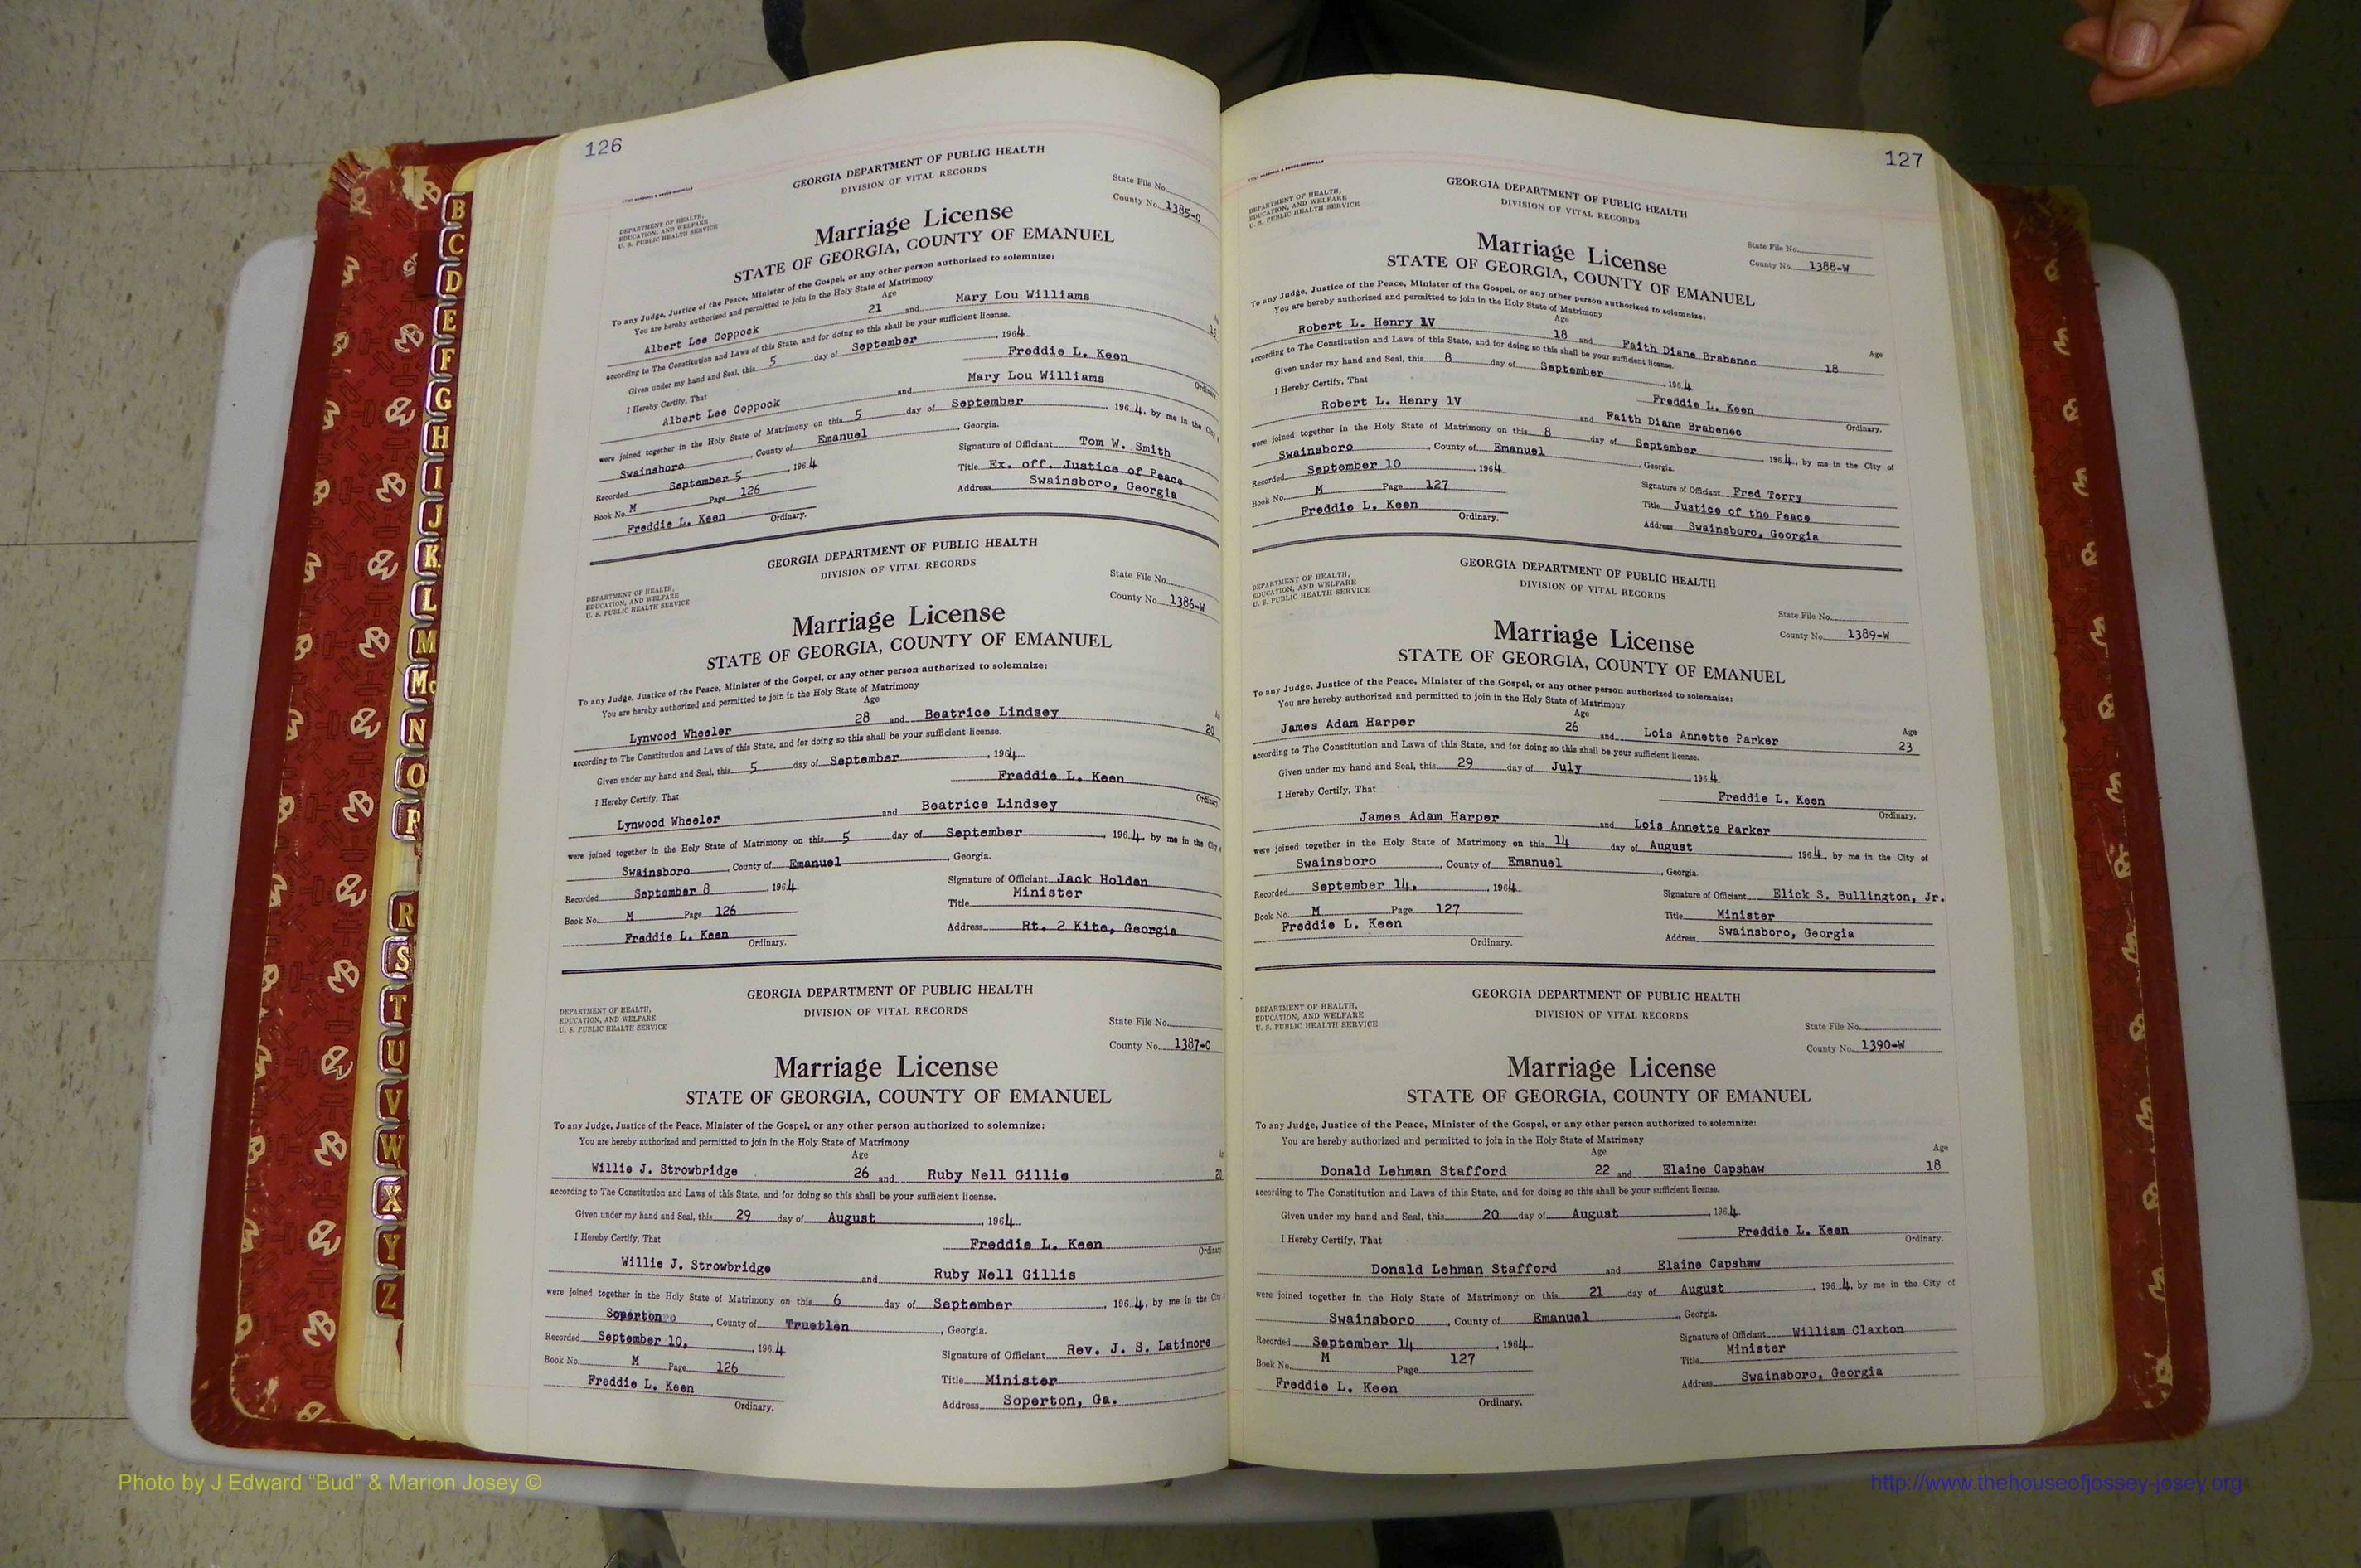 126
GEORGIA DEPARTMENT OF PUBLIC HEALTH
DIVISION OF VITAL RECORDS
DEPARTMENT OF HEALTH,
EDUCATION, AND WELFARE
U. S. PUBLIC HEALTH SERVICE
State File No.
County No. 1385-C
Marriage License
STATE OF GEORGIA, COUNTY OF EMANUEL
To any Judge, Justice of the Peace, Minister of the Gospel, or any other person authorized to solemnize:
You are hereby authorized and permitted to join in the Holy State of Matrimony
Age
Albert Lee Coppock 21 and Mary Lou Williams
according to The Constitution and Laws of this State, and for doing so this shall be your sufficient license.
Given under my hand and Seal, this 5 day of September, 1964
Freddie L. Keen
Ordinary
I Hereby Certify, That
Albert Lee Coppock and Mary Lou Williams
were joined together in the Holy State of Matrimony on this 5 day of September, 1964, by me in the City
Swainsboro, County of Emanuel, Georgia.
Recorded September 5, 1964
Signature of Officiant Tom W. Smith
Book No. M Page 126
Title Ex. off. Justice of Peace
Freddie L. Keen
Ordinary.
Address Swainsboro, Georgia
GEORGIA DEPARTMENT OF PUBLIC HEALTH
DIVISION OF VITAL RECORDS
DEPARTMENT OF HEALTH,
EDUCATION, AND WELFARE
U. S. PUBLIC HEALTH SERVICE
State File No.
County No. 1386-W
Marriage License
STATE OF GEORGIA, COUNTY OF EMANUEL
To any Judge, Justice of the Peace, Minister of the Gospel, or any other person authorized to solemnize:
You are hereby authorized and permitted to join in the Holy State of Matrimony
Age
Lynwood Wheeler 28 and Beatrice Lindsey 20
according to The Constitution and Laws of this State, and for doing so this shall be your sufficient license.
Given under my hand and Seal, this 5 day of September, 1964
Freddie L. Keen
Ordinary
I Hereby Certify, That
Lynwood Wheeler and Beatrice Lindsey
were joined together in the Holy State of Matrimony on this 5 day of September, 1964, by me in the City
Swainsboro, County of Emanuel, Georgia.
Recorded September 8, 1964
Signature of Officiant Jack Holden
Book No. M Page 126
Title Minister
Freddie L. Keen
Ordinary.
Address Rt. 2 Kite, Georgia
GEORGIA DEPARTMENT OF PUBLIC HEALTH
DIVISION OF VITAL RECORDS
DEPARTMENT OF HEALTH,
EDUCATION, AND WELFARE
U. S. PUBLIC HEALTH SERVICE
State File No.
County No. 1387-C
Marriage License
STATE OF GEORGIA, COUNTY OF EMANUEL
To any Judge, Justice of the Peace, Minister of the Gospel, or any other person authorized to solemnize:
You are hereby authorized and permitted to join in the Holy State of Matrimony
Age
Willie J. Strowbridge 26 and Ruby Nell Gillis 20
according to The Constitution and Laws of this State, and for doing so this shall be your sufficient license.
Given under my hand and Seal, this 29 day of August, 1964
Freddie L. Keen
Ordinary
I Hereby Certify, That
Willie J. Strowbridge and Ruby Nell Gillis
were joined together in the Holy State of Matrimony on this 6 day of September, 1964, by me in the City
Soperton, County of Truetlen, Georgia.
Recorded September 10, 1964
Signature of Officiant Rev. J. S. Latimore
Book No. M Page 126
Title Minister
Freddie L. Keen
Ordinary.
Address Soperton, Ga.
127
GEORGIA DEPARTMENT OF PUBLIC HEALTH
DIVISION OF VITAL RECORDS
DEPARTMENT OF HEALTH,
EDUCATION, AND WELFARE
U. S. PUBLIC HEALTH SERVICE
State File No.
County No. 1388-W
Marriage License
STATE OF GEORGIA, COUNTY OF EMANUEL
To any Judge, Justice of the Peace, Minister of the Gospel, or any other person authorized to solemnize:
You are hereby authorized and permitted to join in the Holy State of Matrimony
Age Age
Robert L. Henry 1V 18 and Faith Diane Brabenec 18
according to The Constitution and Laws of this State, and for doing so this shall be your sufficient license.
Given under my hand and Seal, this 8 day of September, 1964
Freddie L. Keen
Ordinary.
I Hereby Certify, That
Robert L. Henry 1V and Faith Diane Brabenec
were joined together in the Holy State of Matrimony on this 8 day of September, 1964, by me in the City of
Swainsboro, County of Emanuel, Georgia.
Recorded September 10, 1964
Signature of Officiant Fred Terry
Book No. M Page 127
Title Justice of the Peace
Freddie L. Keen
Ordinary.
Address Swainsboro, Georgia
GEORGIA DEPARTMENT OF PUBLIC HEALTH
DIVISION OF VITAL RECORDS
DEPARTMENT OF HEALTH,
EDUCATION, AND WELFARE
U. S. PUBLIC HEALTH SERVICE
State File No.
County No. 1389-W
Marriage License
STATE OF GEORGIA, COUNTY OF EMANUEL
To any Judge, Justice of the Peace, Minister of the Gospel, or any other person authorized to solemnize:
You are hereby authorized and permitted to join in the Holy State of Matrimony
Age Age
James Adam Harper 26 and Lois Annette Parker 23
according to The Constitution and Laws of this State, and for doing so this shall be your sufficient license.
Given under my hand and Seal, this 29 day of July, 1964
Freddie L. Keen
Ordinary.
I Hereby Certify, That
James Adam Harper and Lois Annette Parker
were joined together in the Holy State of Matrimony on this 14 day of August, 1964, by me in the City of
Swainsboro, County of Emanuel, Georgia.
Recorded September 14, 1964
Signature of Officiant Elick S. Bullington, Jr.
Book No. M Page 127
Title Minister
Freddie L. Keen
Ordinary.
Address Swainsboro, Georgia
GEORGIA DEPARTMENT OF PUBLIC HEALTH
DIVISION OF VITAL RECORDS
DEPARTMENT OF HEALTH,
EDUCATION, AND WELFARE
U. S. PUBLIC HEALTH SERVICE
State File No.
County No. 1390-W
Marriage License
STATE OF GEORGIA, COUNTY OF EMANUEL
To any Judge, Justice of the Peace, Minister of the Gospel, or any other person authorized to solemnize:
You are hereby authorized and permitted to join in the Holy State of Matrimony
Age Age
Donald Lehman Stafford 22 and Elaine Capshaw 18
according to The Constitution and Laws of this State, and for doing so this shall be your sufficient license.
Given under my hand and Seal, this 20 day of August, 1964
Freddie L. Keen
Ordinary.
I Hereby Certify, That
Donald Lehman Stafford and Elaine Capshaw
were joined together in the Holy State of Matrimony on this 21 day of August, 1964, by me in the City of
Swainsboro, County of Emanuel, Georgia.
Recorded September 14, 1964
Signature of Officiant William Claxton
Book No. M Page 127
Title Minister
Freddie L. Keen
Ordinary.
Address Swainsboro, Georgia
B
C
D
E
F
G
H
I
J
K
L
M
Mc
N
O
P
R
S
T
U
V
W
X
Y
Z
Photo by J Edward “Bud” & Marion Josey ©
http://www.thehouseofjossey-josey.org